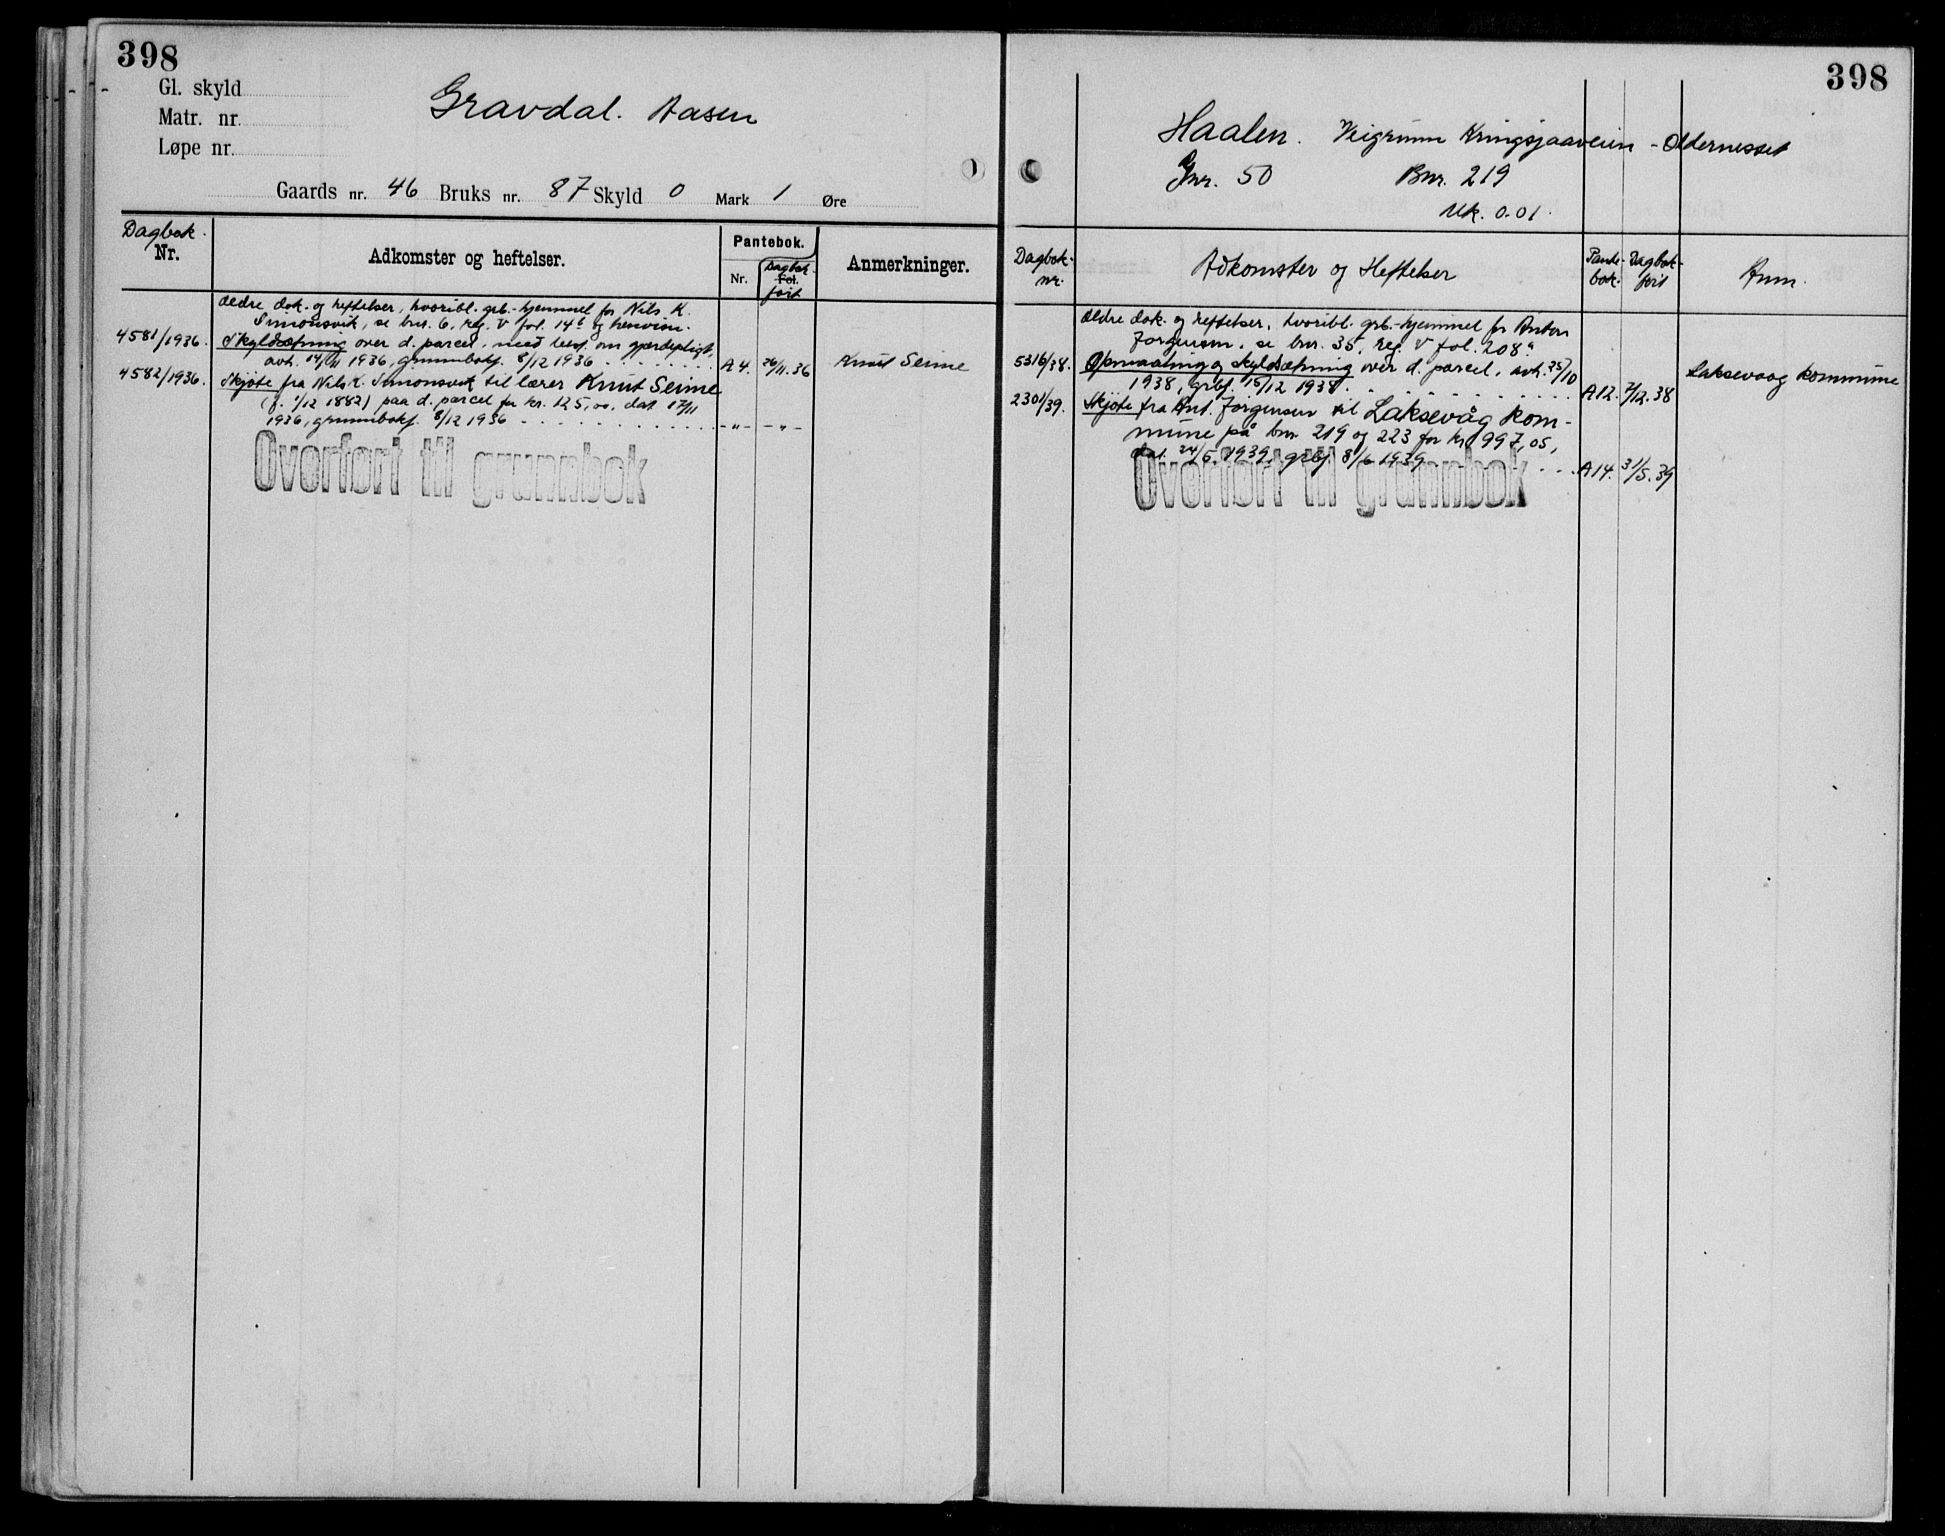 398
Gl. skyld
Matr. nr.
Løpe nr.
Gravdal. Aasen
Gaards nr. 46 Bruks nr. 87 Skyld 0 Mark 1 Øre
Dagbok. Nr.
Adkomster og heftelser.
Pantebok.
Nr.
Dagbok. Fol. ført
Anmerkninger.
Ældre dok. og heftelser, hvoribl. grb.-hjemmel for Nils K.
Simonsvik, se bnr. 6, reg. V fol. 14b og henvisn.
4581/1936. Skyldsætning over d. parcel, med best. om gjerdepligt,
avh. 14/11 1936, grunnbokf. 8/12 1936 . . . . . . . A4. 26/11.36 Knut Seime
4582/1936. Skjøte fra Nils K. Simonsvik til lærer Knut Seime
(f. 1/12 1882) paa d. parcel for kr. 125,00, dat 17/11
1936, grunnbokf. 8/12 1936 . . . . . . . . . . . -"- -"-
Overført til grunnbok
398
Haalen. Veigrunn Kringsjaaveien - Oldernesset
Gnr. 50 Bnr. 219
Mk. 0.01.
Dagbok-nr.
Adkomster og Heftelser
Pante-bok.
Dagbok-ført
Anm.
Ældre dok. og heftelser, hvoribl. grb.-hjemmel for Anton
Jørgensen, se bnr. 35, reg. V fol. 208a
5316/38. Opmaaling og skyldsætning over d. parcel, avh. 25/10
1938, grbf. 15/12 1938 . . . . . . . . . . A12. 7/12.38 Laksevaag kommune
2301/39. Skjøte fra Ant. Jørgensen til Laksevåg kom-
mune på bnr. 219 og 223 for kr. 997,05,
dat. 24/5 1939, grbf. 8/6 1939 . . . A14. 31/5.39
Overført til grunnbok